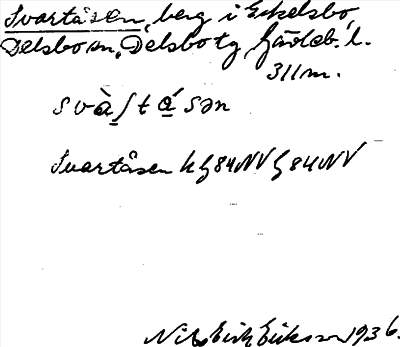 Svartåsen, berg i Eckelsbo,
Delsbo sn, Delsbo tg, Gävleb. l.
311 m.
svà̱ʃtá̱sən
Svartåsen k G 84 NV G 84 NV
Nils Erik Eriksson 1936.